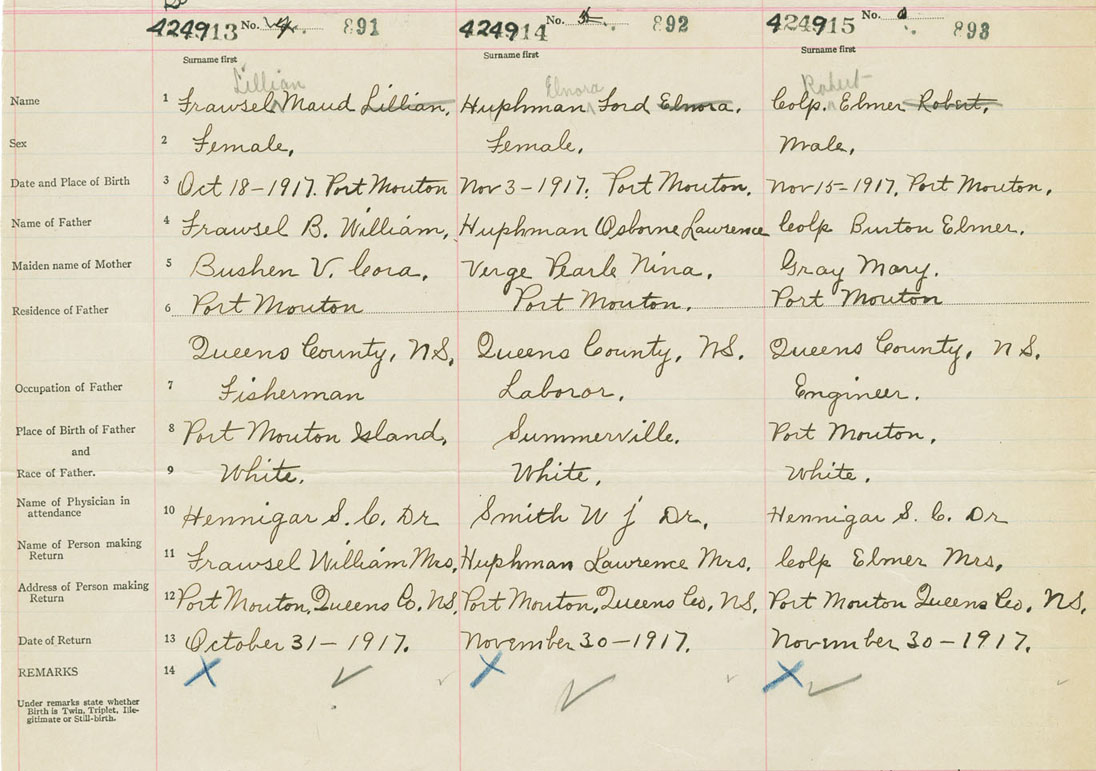 424913 No. 4. 891 424914 No. 5. 892 424915 No. 893
Surname first Surname first Surname first
Lillian Elnora Robert
Name 1 Frawsel Maud Lillian, Huphman Ford Elnora, Colp, Elmer Robert,
Sex 2 Female, Female, Male,
Date and Place of Birth 3 Oct 18-1917. Port Mouton Nov 3-1917. Port Mouton, Nov 15-1917, Port Mouton,
Name of Father 4 Frawsel B. William, Huphman Osborne Lawrence Colp Burton Elmer.
Maiden name of Mother 5 Bushen V. Cora, Verge Pearle Nina, Gray Mary.
Residence of Father 6 Port Mouton Port Mouton, Port Mouton
Queens County, NS, Queens County, NS. Queens County, NS.
Occupation of Father 7 Fisherman Laboror, Engineer.
Place of Birth of Father 8 Port Mouton Island, Summerville. Port Mouton,
and
Race of Father. 9 White, White, White,
Name of Physician in
attendance 10 Hennigar S. C. Dr Smith W J Dr, Hennigar S. C. Dr
Name of Person making
Return 11 Frawsel William Mrs, Huphman Lawrence Mrs, Colp Elmer Mrs,
Address of Person making
Return 12 Port Mouton, Queens Co, NS, Port Mouton, Queens Co, NS, Port Mouton Queens Co, NS,
Date of Return 13 October 31-1917. November 30-1917. November 30-1917.
REMARKS 14
Under remarks state whether
Birth is Twin, Triplet, Ille-
gitimate or Still-birth.